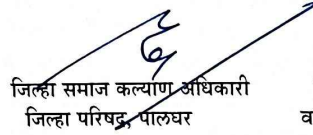 जिल्हा समाज कल्याण अधिकारी
जिल्हा परिषद, पालघर व